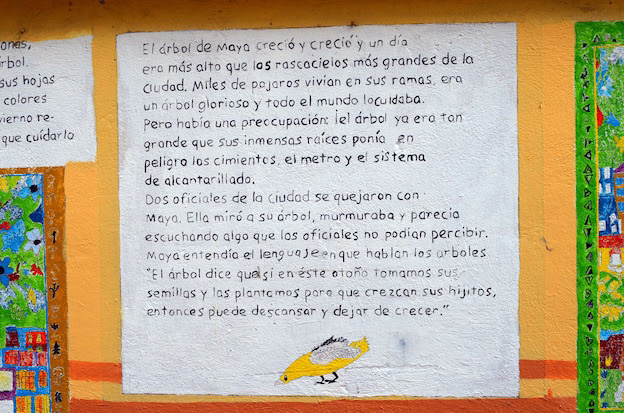 onas,
rbol.
sus hojas
colores
vierno re-
que cuidarlo
El árbol de Maya creció y creció y un día
era más alto que los rascacielos más grandes de la
Ciudad. Miles de pajaros vivian en sus ramas, era
un árbol glorioso y todo el mundo locuidaba.
Pero había una preocupación: ¡el árbol ya era tan
grande que sus inmensas raíces ponía en
peligro los cimientos, el metro y el sistema
de alcantarillado.
Dos oficiales de la Ciudad se quejaron con
Maya. Ella miró a su árbol, murmuraba y parecía
escuchando algo que los oficiales no podian percibir.
Maya entendía el lenguaje en que hablan los arboles
"El árbol dice que si en éste otoño tomamos sus
semillas y las plantamos para que crezcan sus hijitos,
entonces puede descansar y dejar de crecer."